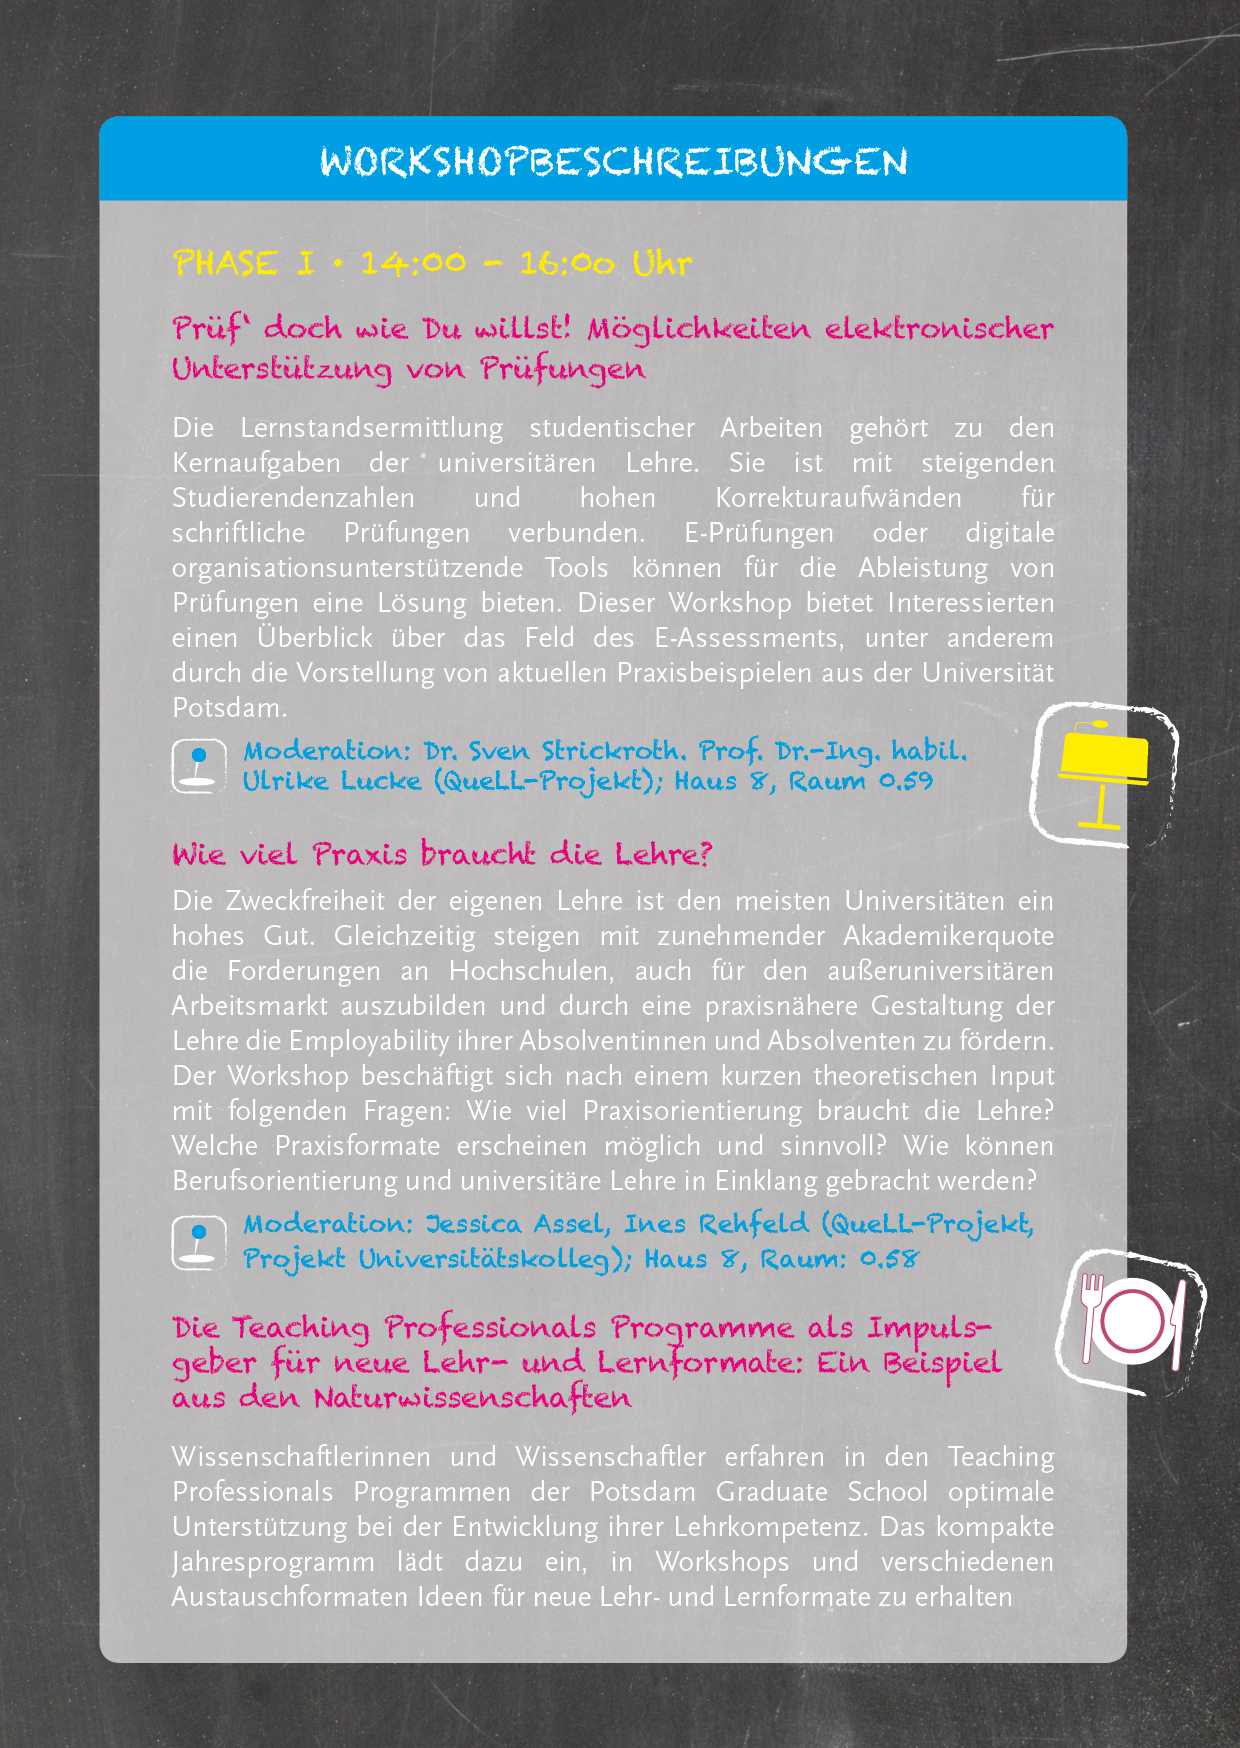 WORKSHOPBESCHREIBUNGEN
PHASE I • 14:00 - 16:00 Uhr
Prüf‘ doch wie Du willst! Möglichkeiten elektronischer
Unterstützung von Prüfungen
Die Lernstandsermittlung studentischer Arbeiten gehört zu den
Kernaufgaben der universitären Lehre. Sie ist mit steigenden
Studierendenzahlen und hohen Korrekturaufwänden für
schriftliche Prüfungen verbunden. E-Prüfungen oder digitale
organisationsunterstützende Tools können für die Ableistung von
Prüfungen eine Lösung bieten. Dieser Workshop bietet Interessierten
einen Überblick über das Feld des E-Assessments, unter anderem
durch die Vorstellung von aktuellen Praxisbeispielen aus der Universität
Potsdam.
Moderation: Dr. Sven Strickroth. Prof. Dr.-Ing. habil.
Ulrike Lucke (QueLL-Projekt); Haus 8, Raum 0.59
Wie viel Praxis braucht die Lehre?
Die Zweckfreiheit der eigenen Lehre ist den meisten Universitäten ein
hohes Gut. Gleichzeitig steigen mit zunehmender Akademikerquote
die Forderungen an Hochschulen, auch für den außeruniversitären
Arbeitsmarkt auszubilden und durch eine praxisnähere Gestaltung der
Lehre die Employability ihrer Absolventinnen und Absolventen zu fördern.
Der Workshop beschäftigt sich nach einem kurzen theoretischen Input
mit folgenden Fragen: Wie viel Praxisorientierung braucht die Lehre?
Welche Praxisformate erscheinen möglich und sinnvoll? Wie können
Berufsorientierung und universitäre Lehre in Einklang gebracht werden?
Moderation: Jessica Assel, Ines Rehfeld (QueLL-Projekt,
Projekt Universitätskolleg); Haus 8, Raum: 0.58
Die Teaching Professionals Programme als Impuls-
geber für neue Lehr- und Lernformate: Ein Beispiel
aus den Naturwissenschaften
Wissenschaftlerinnen und Wissenschaftler erfahren in den Teaching
Professionals Programmen der Potsdam Graduate School optimale
Unterstützung bei der Entwicklung ihrer Lehrkompetenz. Das kompakte
Jahresprogramm lädt dazu ein, in Workshops und verschiedenen
Austauschformaten Ideen für neue Lehr- und Lernformate zu erhalten